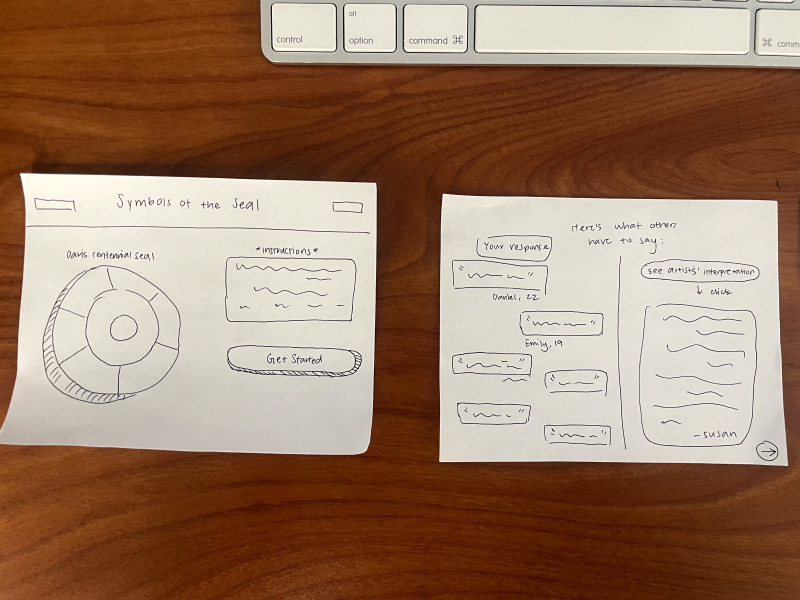 control
alt
option
command ⌘
⌘ comm
Symbols of the Seal
Davis centennial seal
*instructions*
Get Started
Here's what others
have to say:
Your response
see artists' interpretation
↓ click
Daniel, 22
Emily, 19
-susan